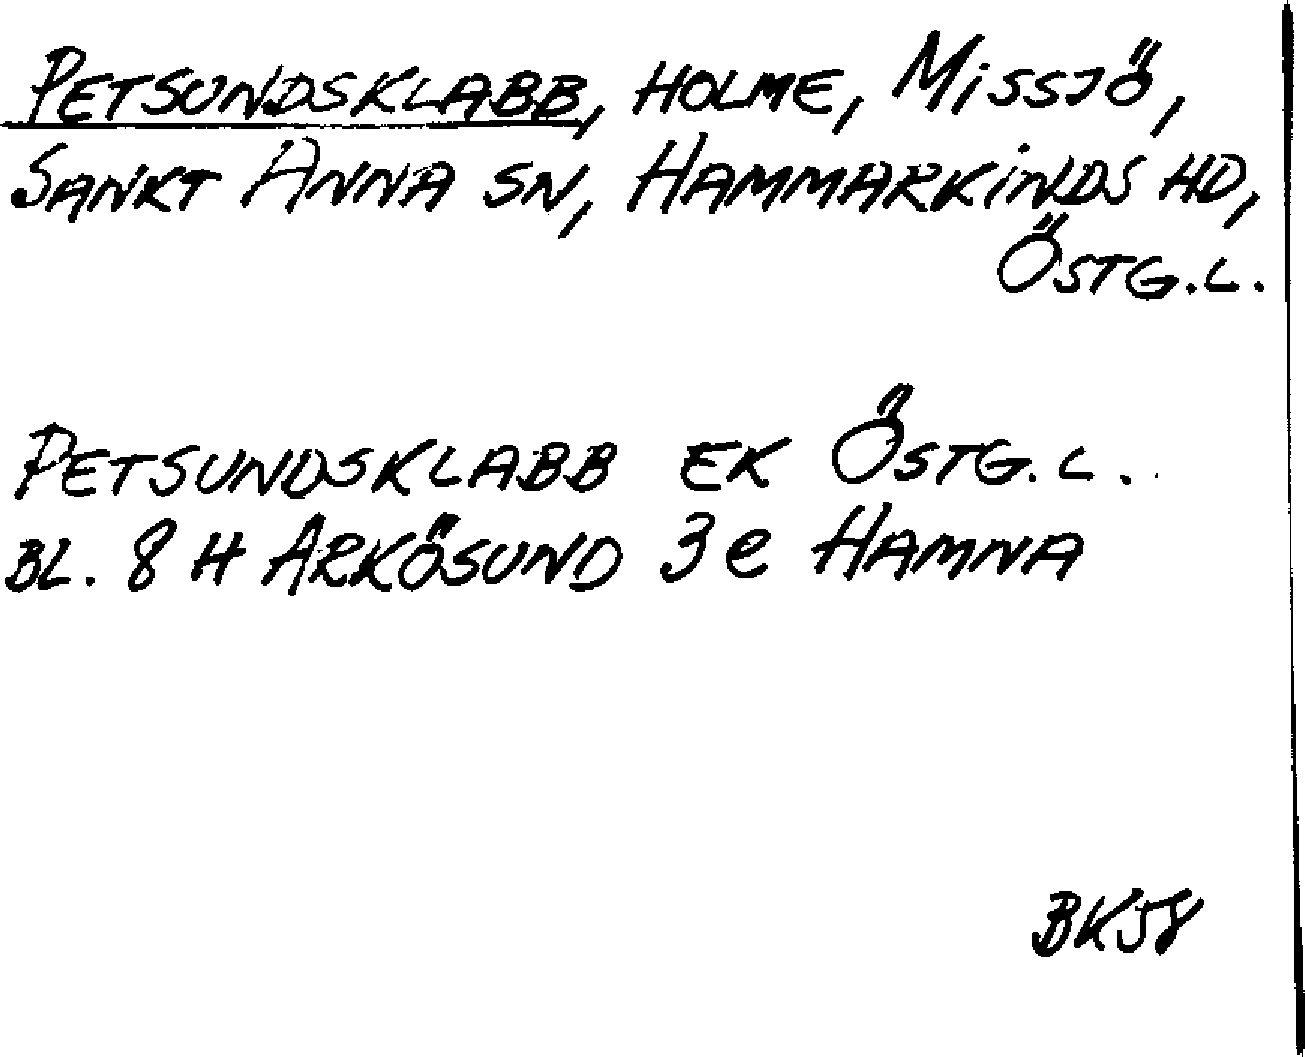 PETSUNDSKLABB, HOLME, MISSJÖ,
SANKT ANNA SN, HAMMARKINDS HD,
ÖSTG.L.
PETSUNDSKLABB EK ÖSTG.L.
BL. 8 H ARKÖSUND 3e HAMNA
BK58